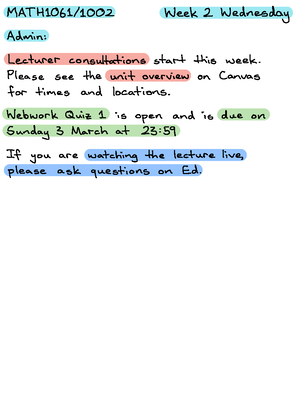 MATH1061/1002 Week 2 Wednesday
Admin:
Lecturer consultations start this week.
Please see the unit overview on Canvas
for times and locations.
Webwork Quiz 1 is open and is due on
Sunday 3 March at 23:59
If you are watching the lecture live,
please ask questions on Ed.